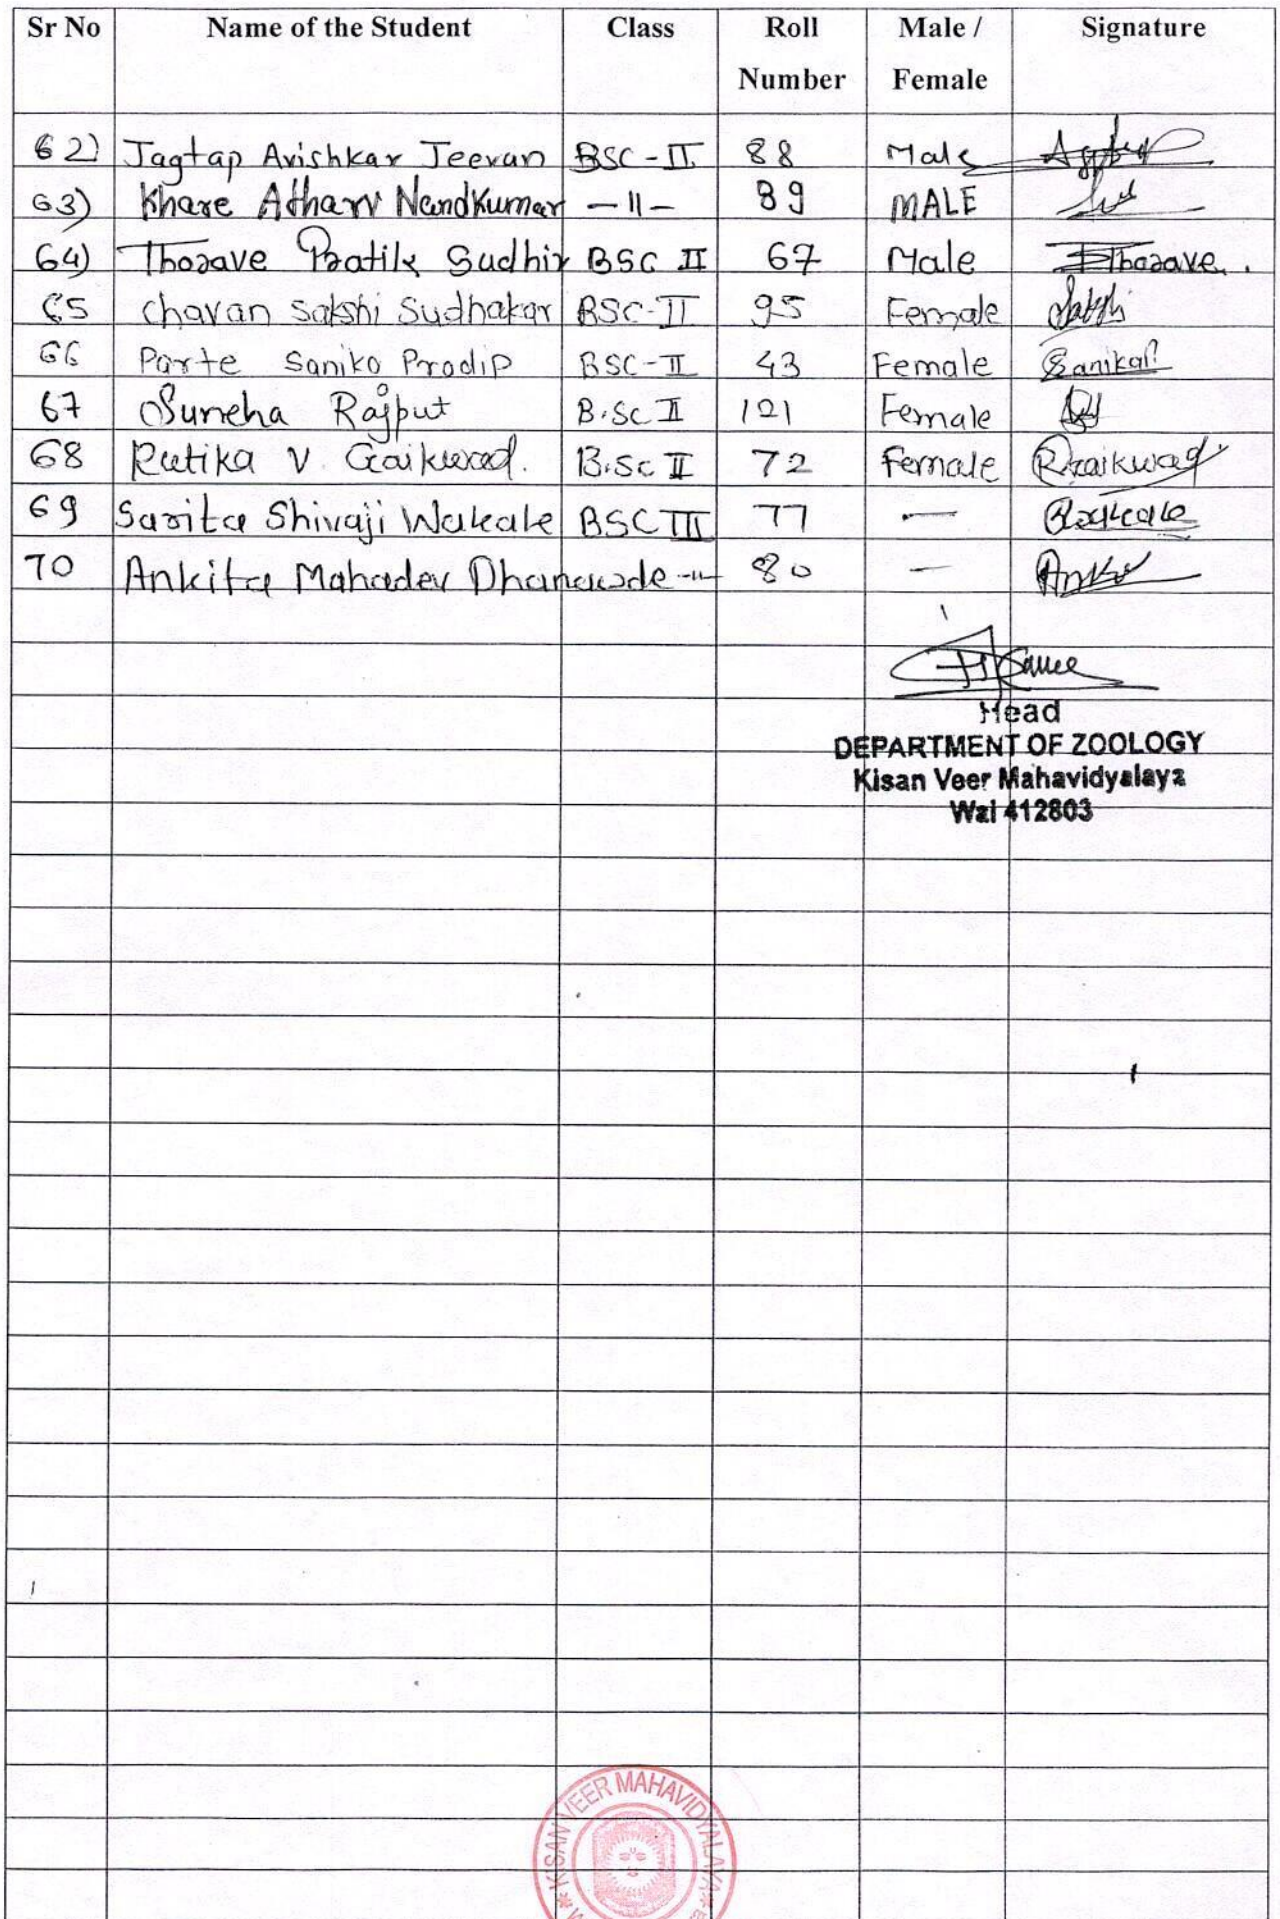 Sr No Name of the Student Class Roll Number Male / Female Signature
62) Jagtap Avishkar Jeevan BSC-II 88 Male
63) Khare Atharv Nandkumar —11— 89 MALE
64) Thorave Pratik Sudhir BSC II 67 Male Thorave.
65 Chavan Sakshi Sudhakar BSC-II 95 Female Sakshi
66 Parte Sanika Pradip BSC-II 43 Female Sanika
67 Suneha Rajput B.Sc II 121 Female
68 Rutika V. Gaikwad. B.Sc II 72 Female RGaikwad
69 Sarita Shivaji Wakale BSC III 77 —
70 Ankita Mahadev Dhanawade -11- 80 —
Head
DEPARTMENT OF ZOOLOGY
Kisan Veer Mahavidyalaya
Wai 412803
KISAN VEER MAHAVIDYALAYA